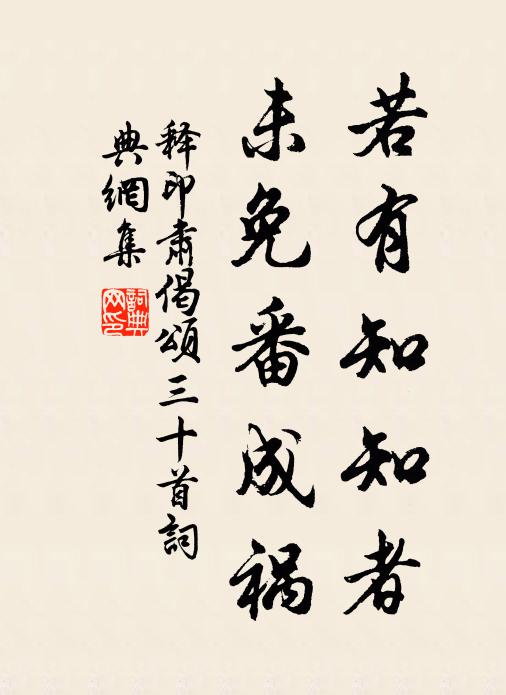 若有知知者
未免番成祸
释印肃偈颂三十首詞
典網集
詞典
网印